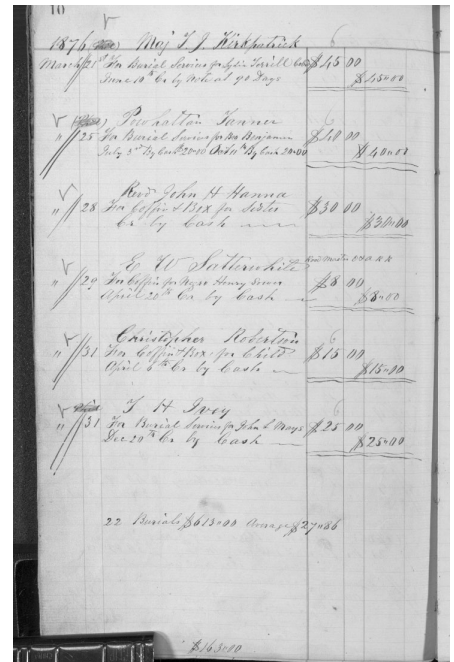 10
1876 Maj T. J. Kirkpatrick
March 21st For Burial Service for $45 00
June 10th Cr by Note at 90 Days $45=00
Powhattan Tanner
" 25 For Burial Service for Benjamin $40 00
July 3d By Cash 20=00 Oct 11th By Cash 20=00 $40=00
Revd John H Hanna
" 28 For Coffin & Box for Sister $30 00
Cr by Cash $30=00
E W Satterwhite
" 29 For Coffin for Negro Henry $8 00
April 20th Cr by Cash $8=00
Christopher Robertson
" 31 For Coffin & Box for Child $15 00
April 6th Cr by Cash $15=00
T H Ivey
" 31 For Burial Service for John L Mays $25 00
Dec 20th Cr by Cash $25=00
22 Burials $613=00 Average $27=86
$163=00